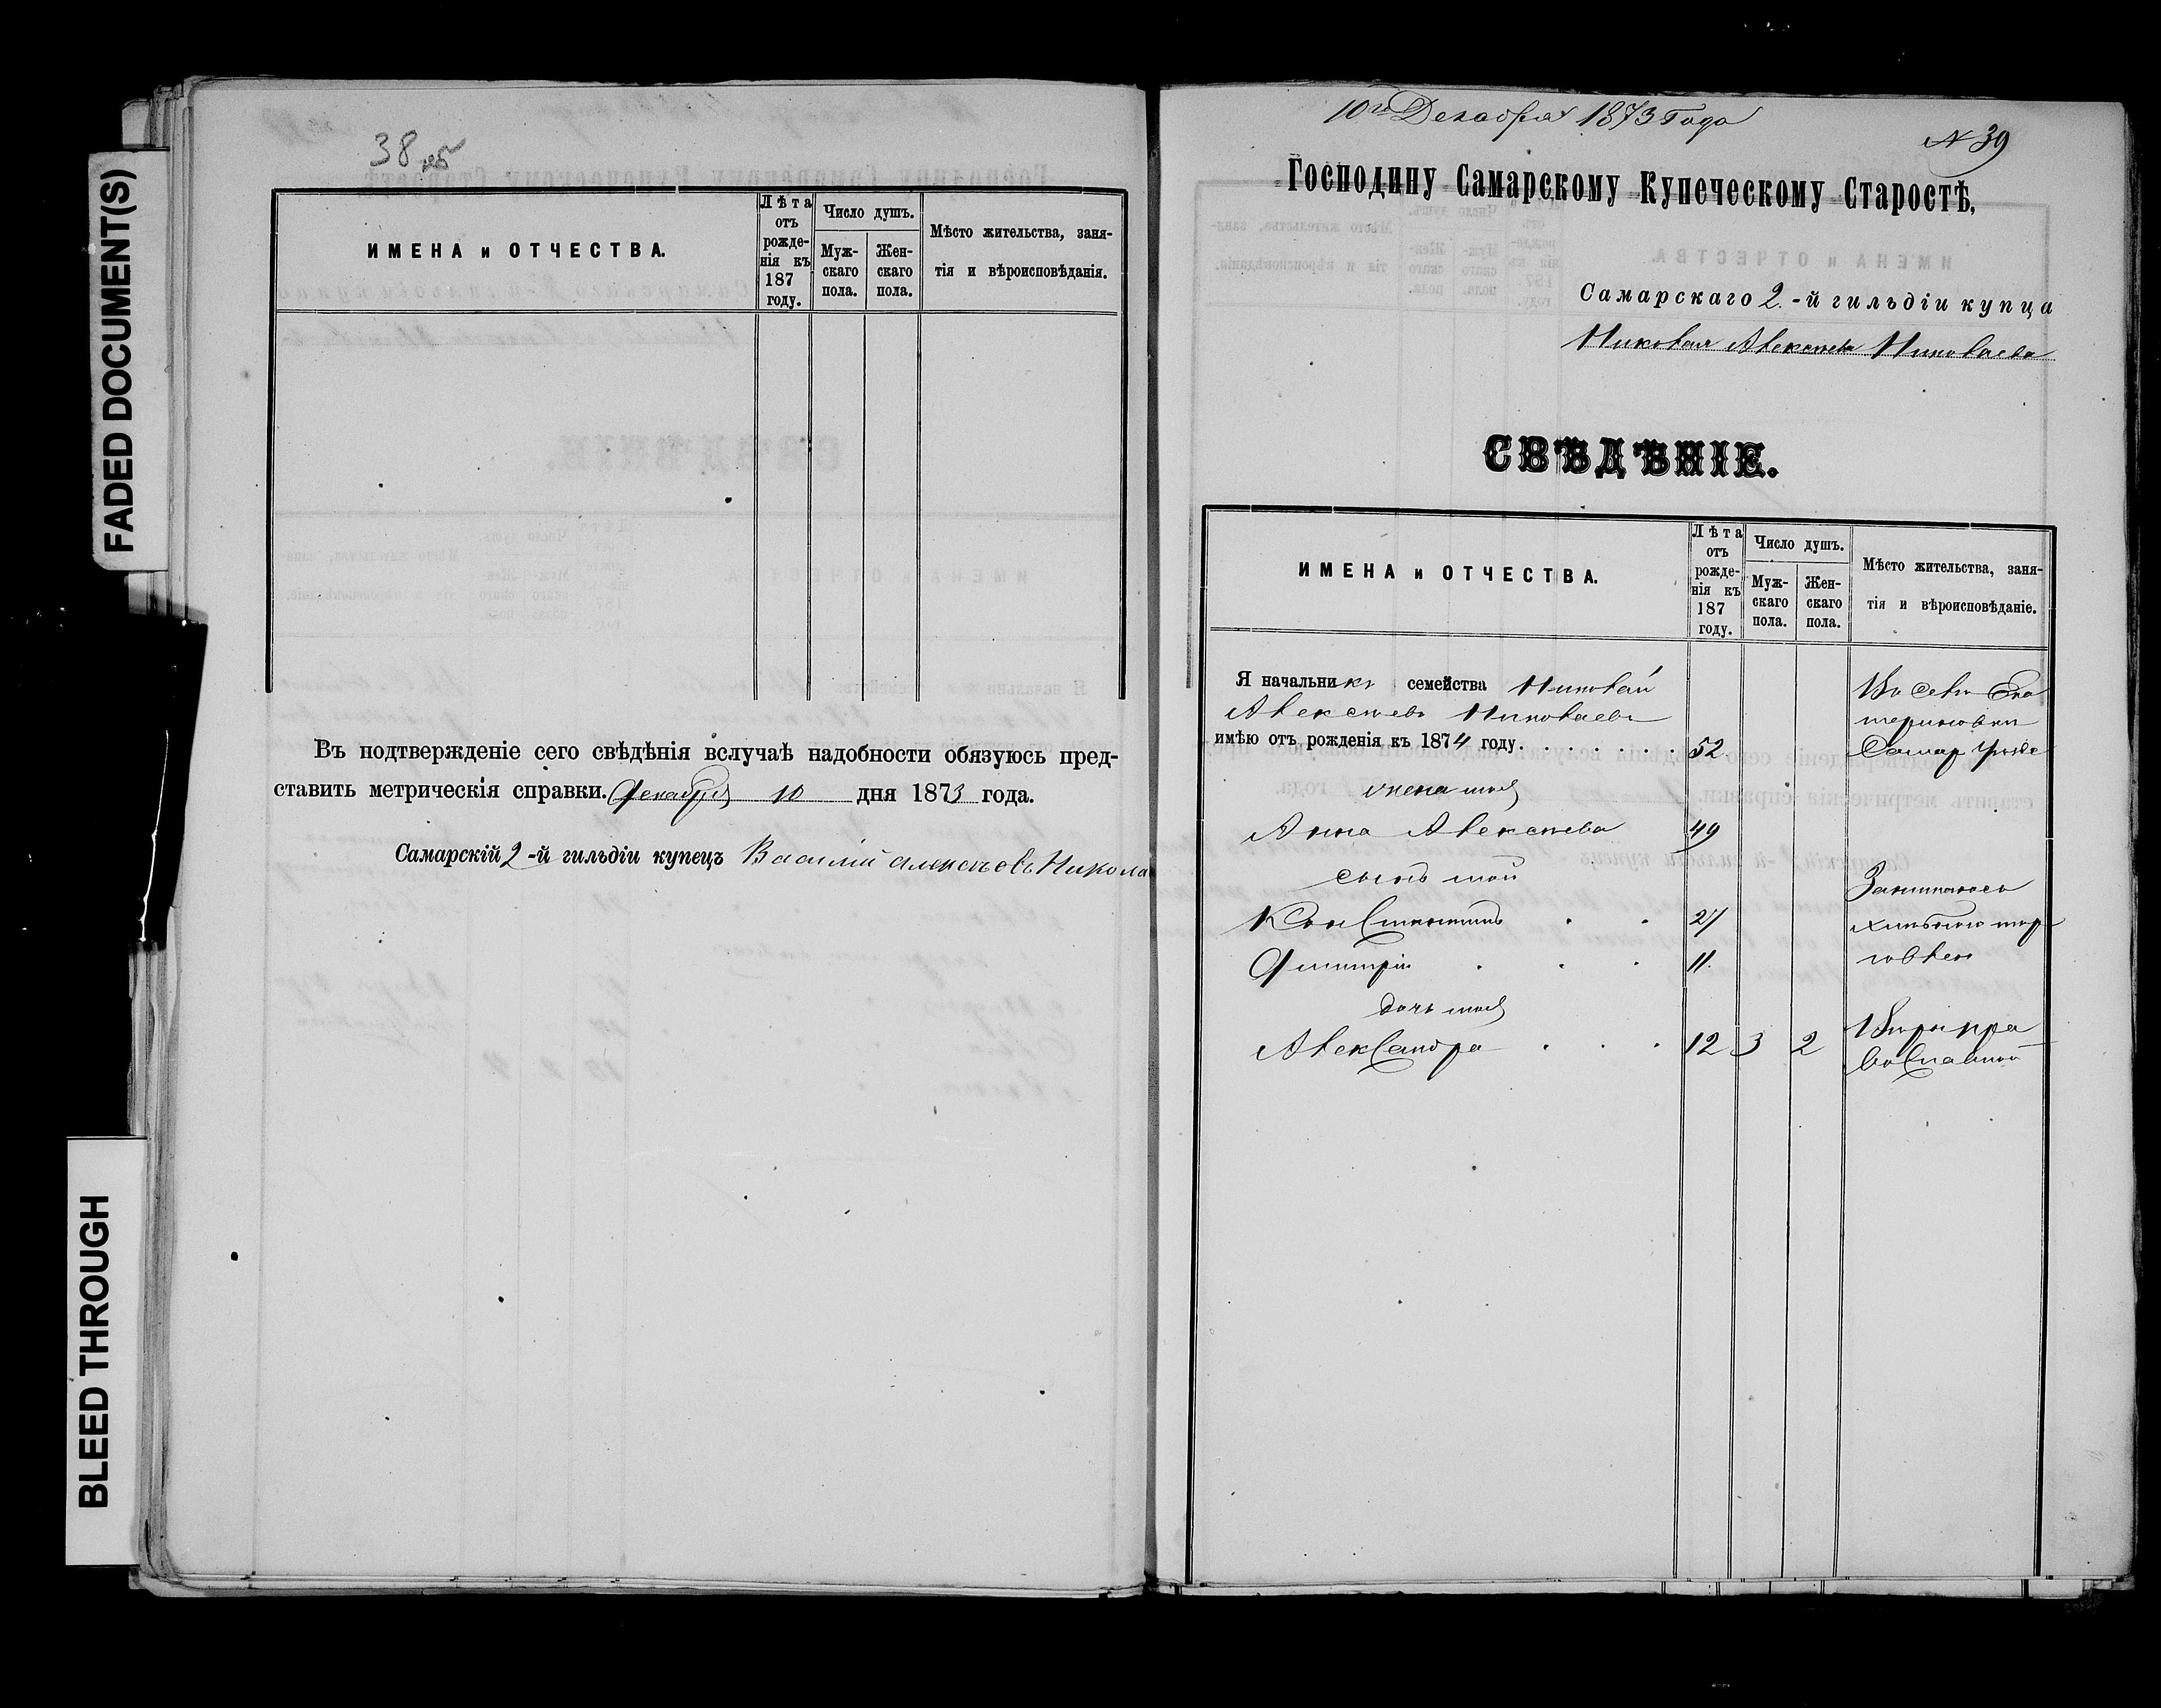 FADED DOCUMENT(S)
BLEED THROUGH
38 об
ИМЕНА и ОТЧЕСТВА.
Лѣта отъ рожде-нія къ 187 году.
Число душъ.
Муж-скаго пола.
Жен-скаго пола.
Мѣсто жительства, заня-
тія и вѣроисповѣданія.
Въ подтвержденіе сего свѣдѣнія вслучаѣ надобности обязуюсь пред-
ставить метрическія справки. Декабря 10 дня 1873 года.
Самарскій 2-й гильдіи купецъ Василій Алексѣевъ Никола
10го Декабря 1873 Года
N 39
Господину Самарскому Купеческому Старостѣ,
Самарскаго 2-й гильдіи купца
Николая Алексѣева Николаева
СВѢДѢНІЕ.
ИМЕНА и ОТЧЕСТВА.
Лѣта отъ рожде-нія къ 187 году.
Число душъ.
Муж-скаго пола.
Жен-скаго пола.
Мѣсто жительства, заня-
тія и вѣроисповѣданіе.
Я начальникъ семейства Николай
Алексѣевъ Николаевъ
имѣю отъ рожденія къ 1874 году. . . . . . . . 52
Въ селѣ Ека
териновки
Самар Уѣзде
жена моя
Анна Алексѣева 49
сынъ мой
Константинъ . . 27
Дмитрій . . . 11.
Занимаюсь
хлѣбною тор
говлею
дочь моя
Александра . . . 12 3 2
Вѣры пра
вославной